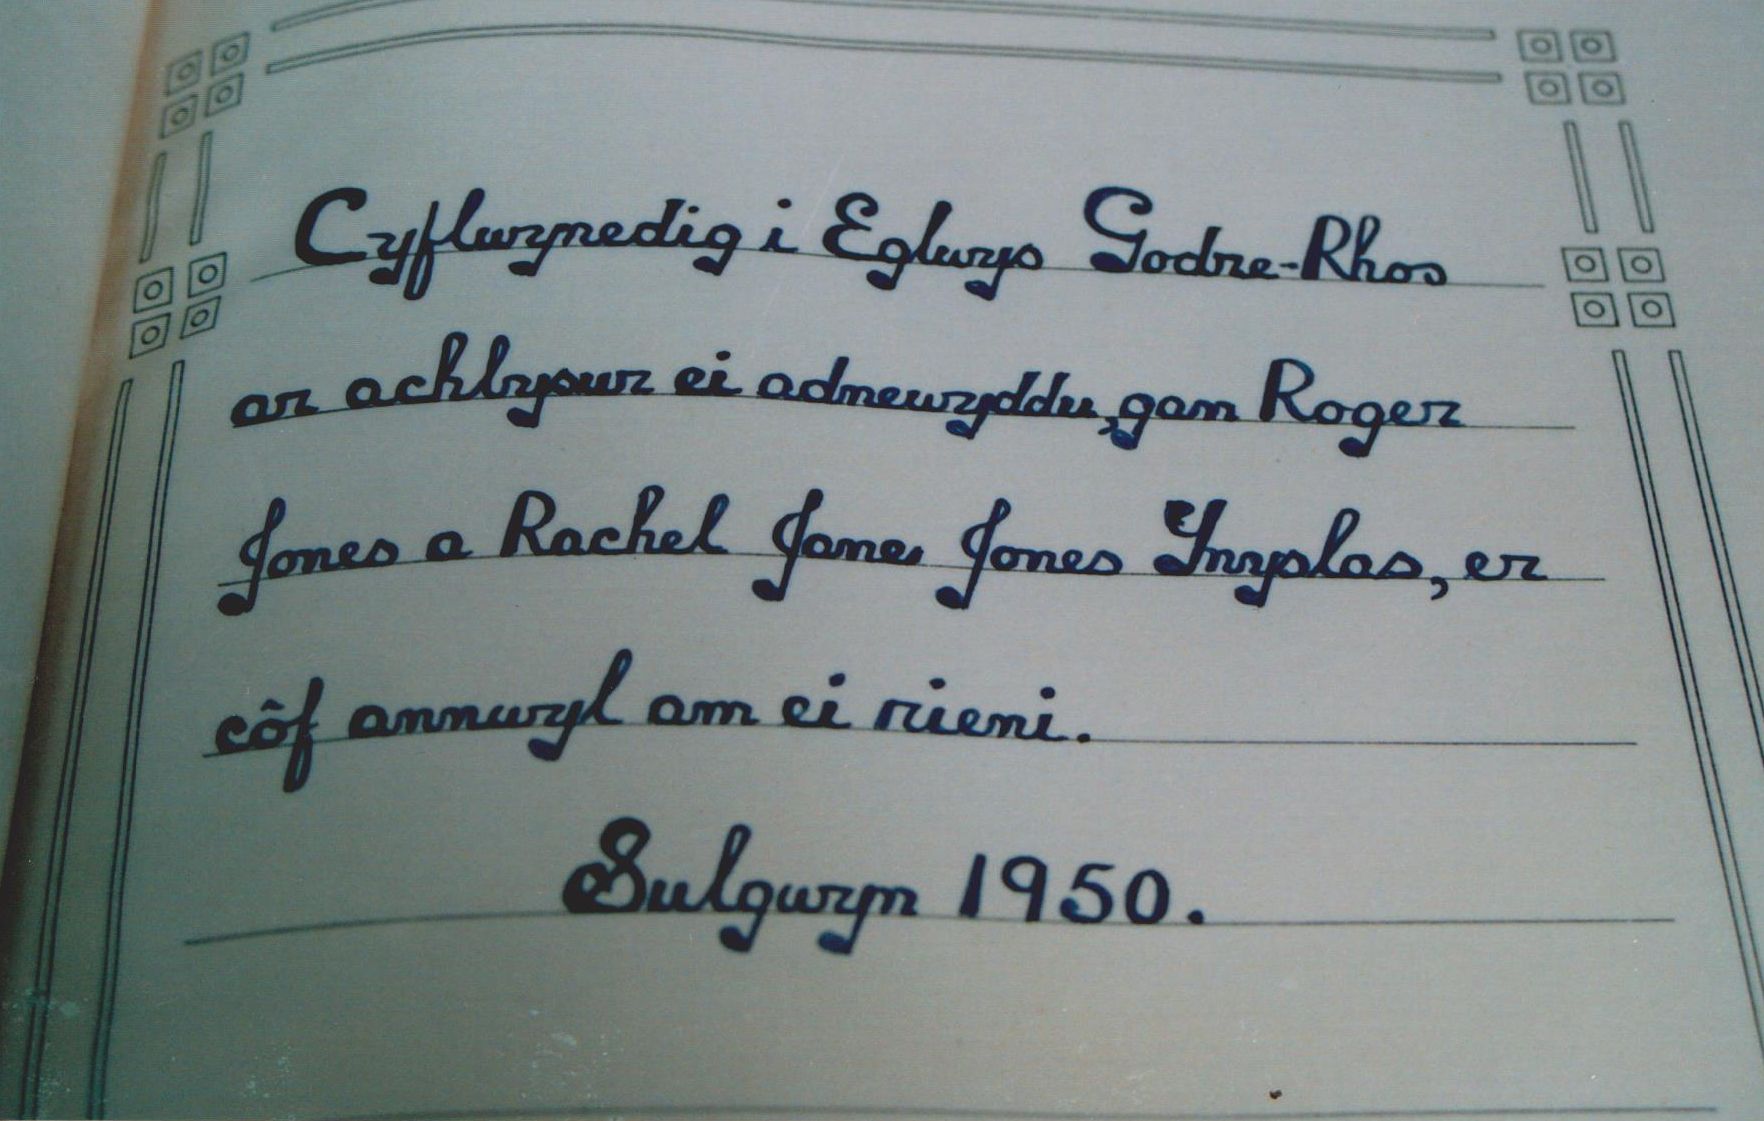 Cyflwynedig i Eglwys Godre-Rhos
ar achlysur ei adnewyddu, gan Roger
Jones a Rachel Jane Jones Ynysplas, er
côf annwyl am ei rieni.
Sulgwyn 1950.